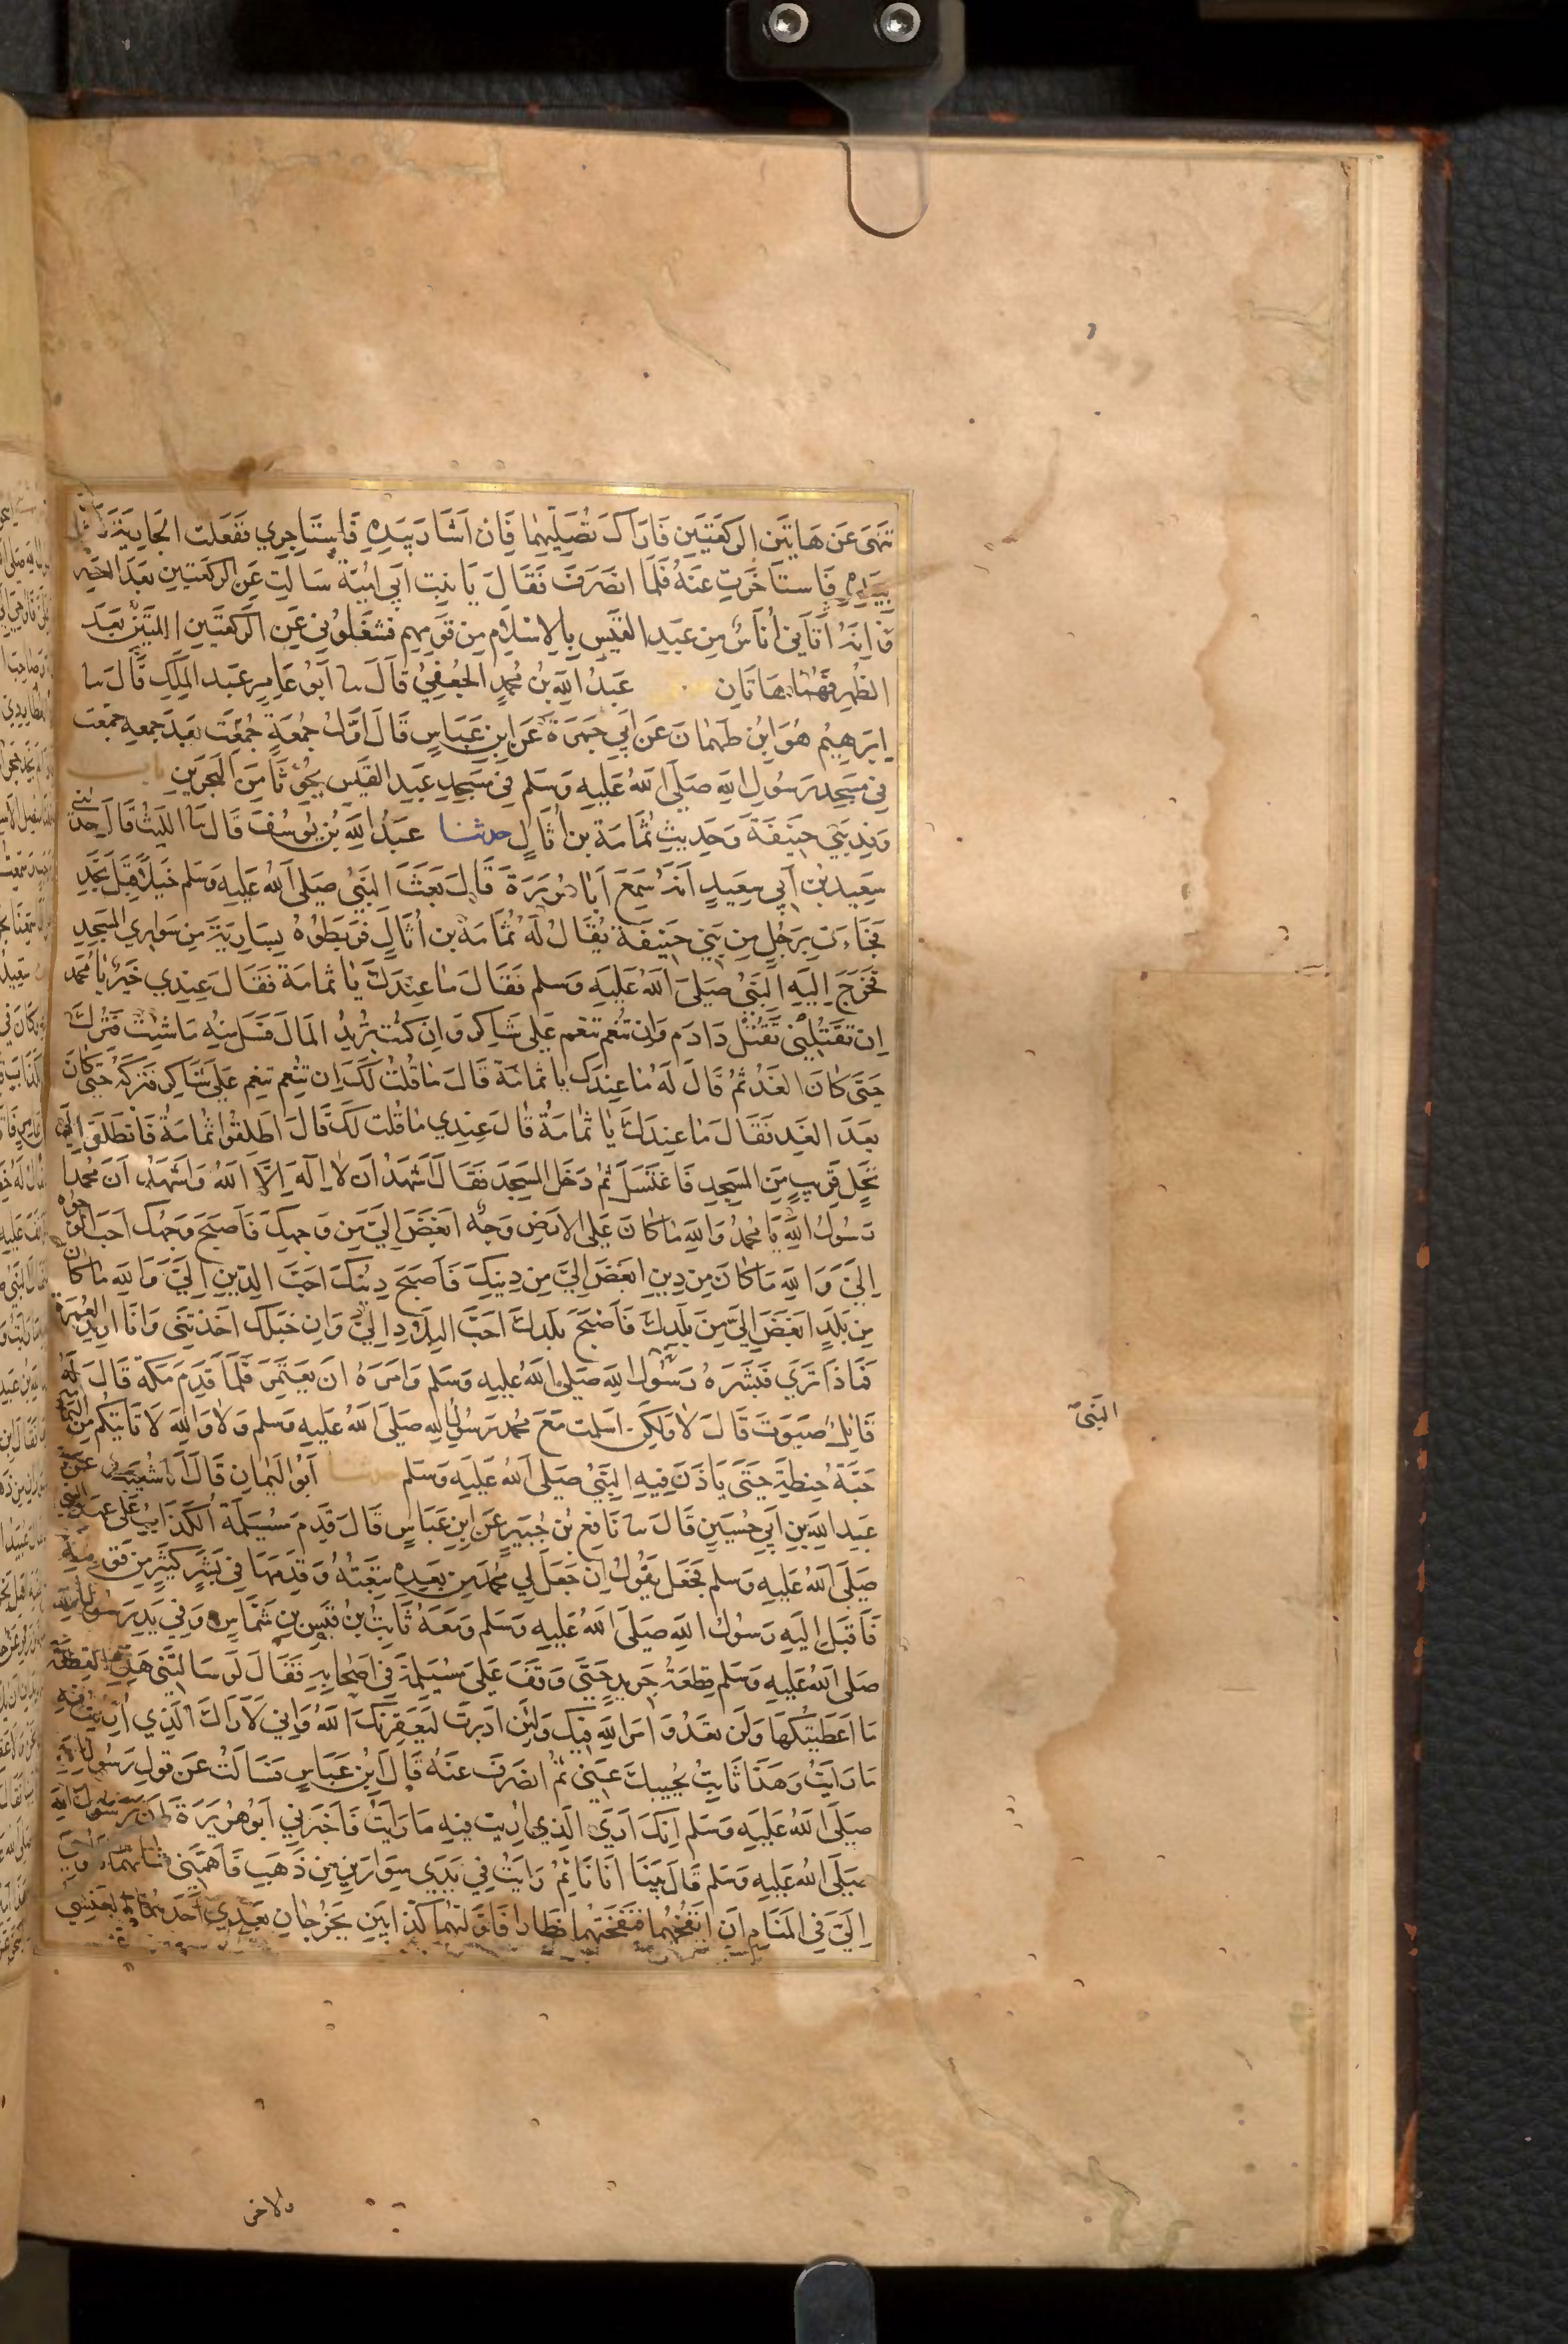 تنهى عن هاتين الركعتين فاراك تصليهما فان اشار بيده فاستاخري ففعلت الجارية فاشار
بيده فاستاخرت عنه فلما انصرف فقال يا بنت ابي امية سالت عن الركعتين بعد العصر
وانه اتاني اناس من عبد القيس بالاسلام من قومهم فشغلوني عن الركعتين اللتين بعد
الظهر فهما هاتان عبد الله بن محمد الجعفي قال سا ابو عامر عبد الملك قال سا
ابرهيم هو ابن طهمان عن ابي جمرة عن ابن عباس قال اول جمعة جمعت بعد جمعه جمعت
في مسجد رسول الله صلى الله عليه وسلم في مسجد عبد القيس بجؤثا من البحرين باب
وفد بني حنيفة وحديث ثمامة بن اثال حدثنا عبد الله بن يوسف قال سا الليث قال حدثني
سعيد بن ابي سعيد انه سمع ابا هريرة قال بعث النبي صلى الله عليه وسلم خيلا قبل نجد
فجاءت برجل من بني حنيفة يقال له ثمامة بن اثال فربطوه بسارية من سواري المسجد
فخرج اليه النبي صلى الله عليه وسلم فقال ما عندك يا ثمامة فقال عندي خير يا محمد
ان تقتلني تقتل ذا دم وان تنعم تنعم على شاكر وان كنت تريد المال فسل منه ما شئت فترك
حتى كان الغد ثم قال له ما عندك يا ثمامة قال ما قلت لك ان تنعم تنعم على شاكر فتركه حتى كان
بعد الغد فقال ما عندك يا ثمامة قال عندي ما قلت لك قال اطلقوا ثمامة فانطلق الى
نجل قريب من المسجد فاغتسل ثم دخل المسجد فقال اشهد ان لا اله الا الله واشهد ان محمدا
رسول الله يا محمد والله ما كان على الارض وجه ابغض الي من وجهك فاصبح وجهك احب الوجوه
الي والله ما كان من دين ابغض الي من دينك فاصبح دينك احب الدين الي والله ما كان
من بلد ابغض الي من بلدك فاصبح بلدك احب البلاد الي وان خيلك اخذتني وانا اريد العمرة
فماذا تري فبشره رسول الله صلى الله عليه وسلم وامره ان يعتمر فلما قدم مكة قال له
قائل صبوت قال لا ولكن اسلمت مع محمد رسول الله صلى الله عليه وسلم ولا والله لا تاتيكم من اليمامة
حبة حنطة حتى ياذن فيه النبي صلى الله عليه وسلم حدثنا ابو اليمان قال انا شعيب عن
عبد الله بن ابي حسين قال سا نافع بن جبير عن ابن عباس قال قدم مسيلمة الكذاب على عهد النبي
صلى الله عليه وسلم فجعل يقول ان جعل لي محمد من بعده تبعته وقدمها في بشر كثير من قومه
فاقبل اليه رسول الله صلى الله عليه وسلم ومعه ثابت بن قيس بن شماس وفي يد رسول الله
صلى الله عليه وسلم قطعة جريد حتى وقف على مسيلمة في اصحابه فقال لو سالتني هذه القطعة
ما اعطيتكها ولن تعدو امر الله فيك ولئن ادبرت ليعقرنك الله واني لاراك الذي اريت فيه
ما رايت وهذا ثابت يجيبك عني ثم انصرف عنه قال ابن عباس فسالت عن قول رسول الله
صلى الله عليه وسلم انك اري الذي اريت فيه ما رايت فاخبرني ابو هريرة ان رسول الله
صلى الله عليه وسلم قال بينا انا نائم رايت في يدي سوارين من ذهب فاهمني شانهما فاوحي
الي في المنام ان انفخهما فنفختهما فطارا فاولتهما كذابين يخرجان بعدي احدهما العنسي
النبي
والاخر